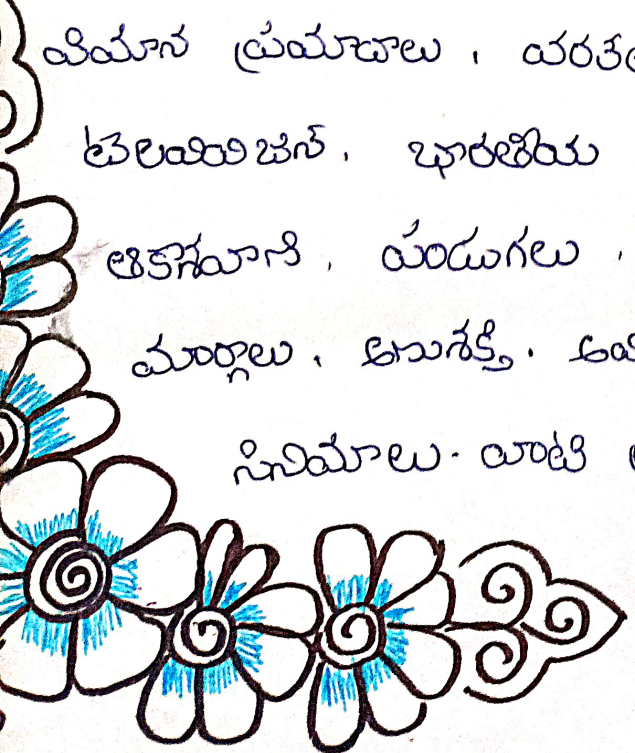 విమాన ప్రమాదాలు ,
టెలివిజన్, భారతీయ
ఆకాశవాణి, పండుగలు ,
మార్గాలు, అణుశక్తి,
సినిమాలు. వాటి